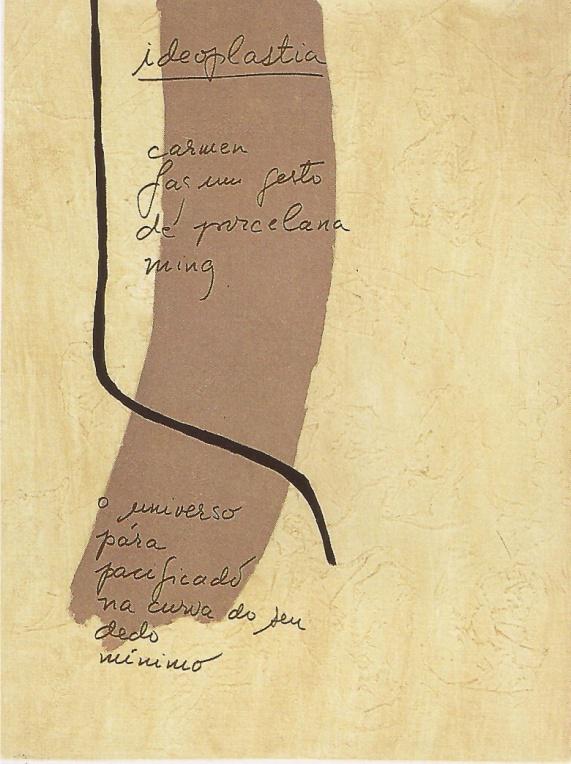 ideoplastia
carmen
faz um gesto
de porcelana
ming
o universo
pára
pacificado
na curva do seu
dedo
mínimo